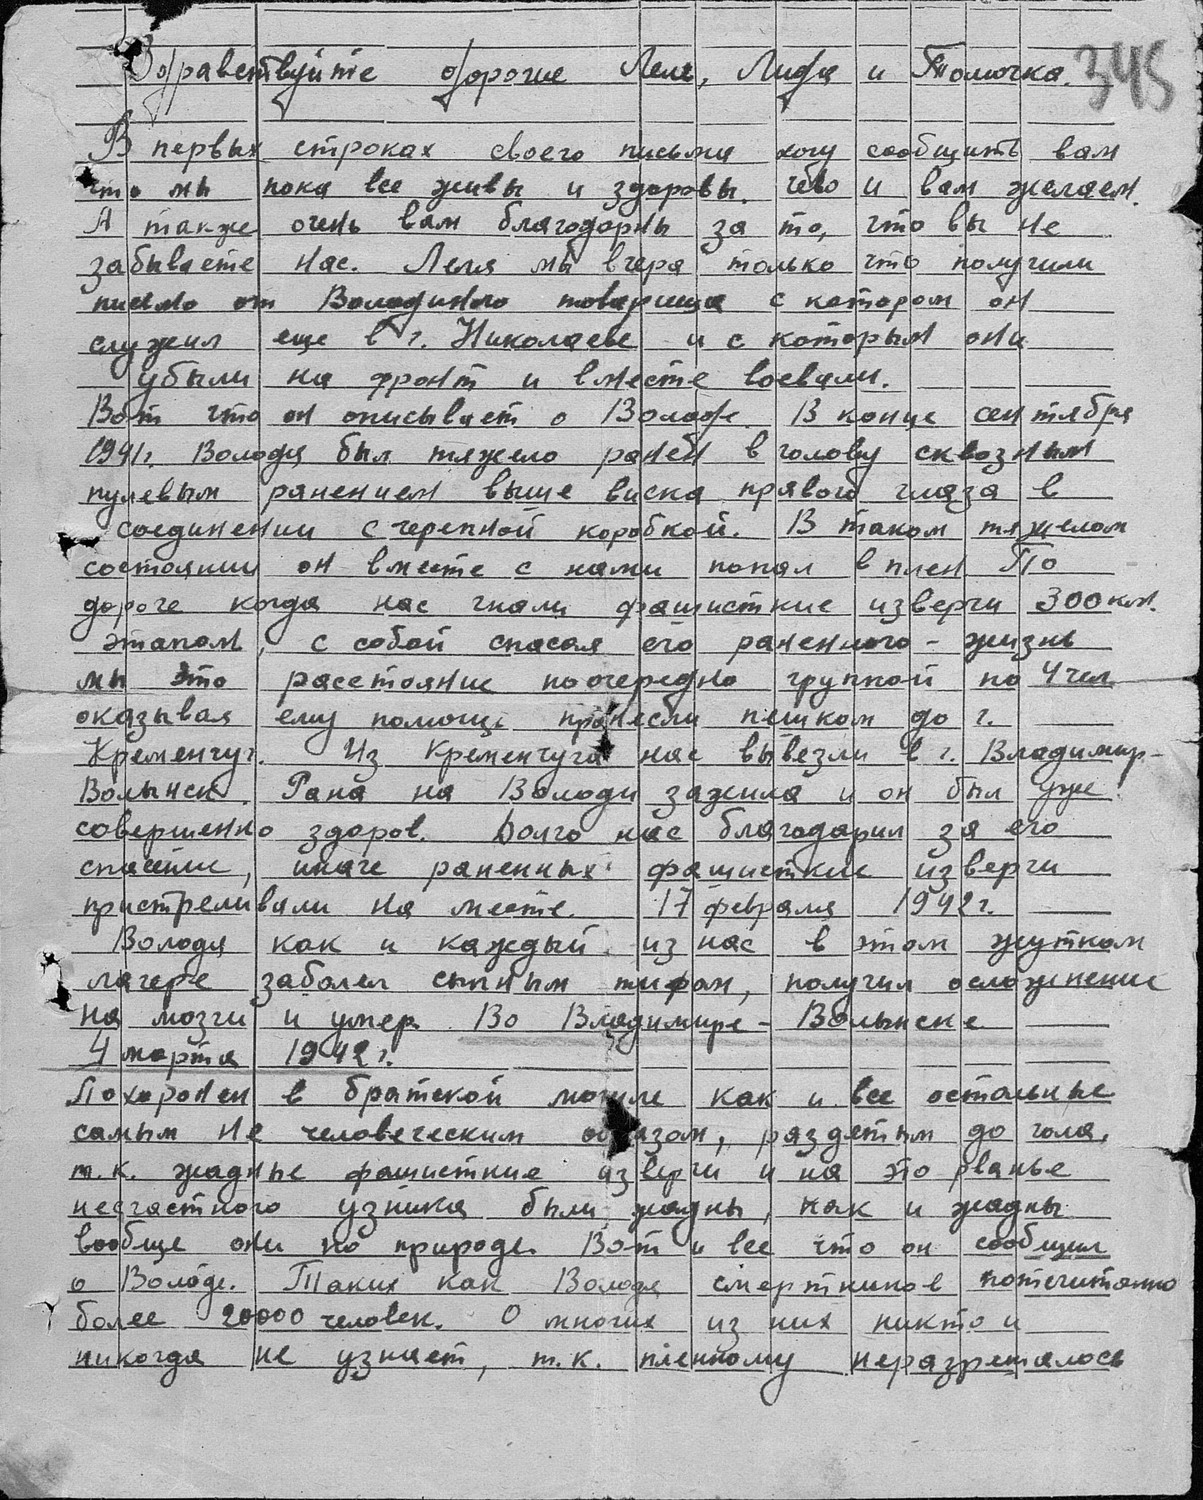 Здравствуйте дорогие Леля, Лида и Томочка. 345
В первых строках своего письма хочу сообщить вам
что мы пока все живы и здоровы. чево и вам желаем.
А также очень вам благодарны за то, что вы не
забываете нас. Леля мы вчера только что получили
письмо от Володиного товарища с котором он
служил еще в г. Николаеве и с которым они
убыли на фронт и вместе воевали.
Вот что он описывает о Володе. В конце сентября
1941г. Володя был тяжело ранен в голову сквозным
пулевым ранением выше виска правого глаза в
соединении с черепной коробкой. В таком тяжелом
состоянии он вместе с нами попал в плен По
дороге когда нас гнали фашисткие изверги 300 км.
этапом, с собой спасая его раненного - жизнь
мы это расстояние поочередно групкой по 4 чел
оказывая ему помощь пронесли пешком до г.
Кременчуг. Из Кременчуга нас вывезли в г. Владимир-
Волынск. Рана на Володи зажила и он был уже
совершенно здоров. Долго нас благодарил за его
спасение, иначе раненных фашисткие изверги
пристреливали на месте. 17 февраля 1942г.
Володя как и каждый из нас в этом жутком
лагере заболел сыпным тифом, получил осложнение
на мозги и умер. Во Владимире - Волынске
4 марта 1942г.
Похоронен в братской могиле как и все остальные
самым не человеческим образом, раздетым до гола,
т.к. жадные фашисткие изверги и на это рванье
несчастного узника были жадны, как и жадны
вообще они по природе. Вот и все что он сообщил
о Володе. Таких как Володя смертников
более 20000 человек. О многих из них никто и
никогда не узнает, т.к. пленному неразрешалось